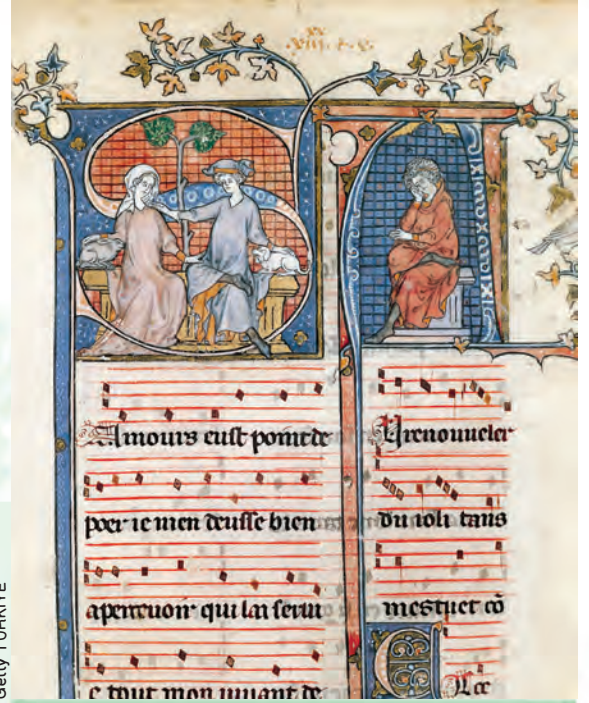 SAmours eust point de
poer ie men deusse bien
aperceuoir qui lai serui
e tout mon uiuant de
AUrenouueler
du ioli tans
mestuet cō
Getty TÜRKİYE